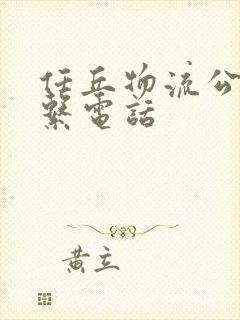 任丘物流公
繫電話
黄立